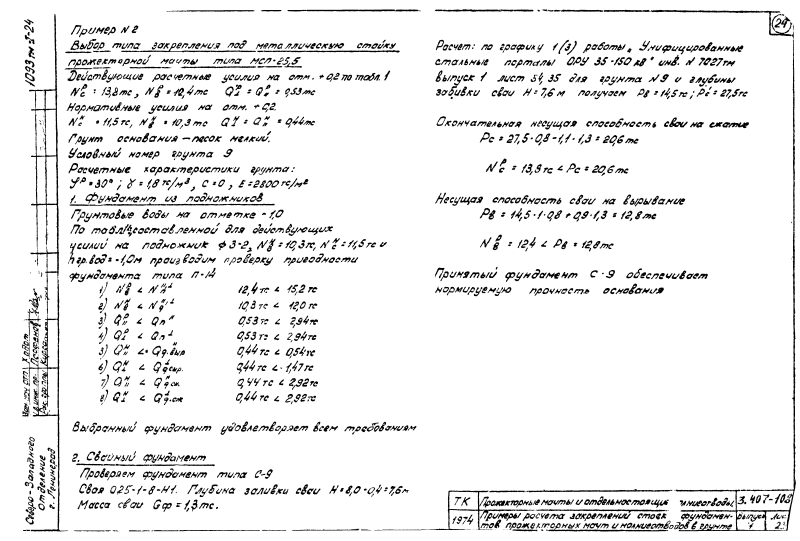 24
1093 тм-I-24
Пример N2
Выбор типа закрепления под металлическую стойку
прожекторной мачты типа мсп-25,5
Действующие расчетные усилия на отм. +0,2 по табл. 1
Nс^р = 13,8тс, Nв^р = 10,4тс Q^р = Q^р = 0,53тс
Нормативные усилия на отм. +0,2
Nс^н = 11,5тс, Nв^н = 10,3тс Q^н = Q^н = 0,44тс
Грунт основания – песок мелкий.
Условный номер грунта 9
Расчетные характеристики грунта:
φ^р = 30°; γ = 1,8 тс/м³, С = 0, Е = 2800 тс/м²
1. Фундамент из подножников
Грунтовые воды на отметке -1,0
По табл. составленной для действующих
усилий на подножник ф3-2, Nв^н = 10,3тс, Nс^н = 11,5тс и
h гр.вод = -1,0м производим проверку пригодности
фундамента типа п-1А
1) 12,4тс < 15,2тс
2) 10,3тс < 12,0тс
3) 0,53тс < 2,94тс
4) 0,53тс < 2,94тс
5) 0,44тс < 0,54тс
6) 0,44тс < 1,47тс
7) 0,44тс < 2,92тс
8) 0,44тс < 2,92тс
Выбранный фундамент удовлетворяет всем требованиям
2. Свайный фундамент
Проверяем фундамент типа С-9
Свая 025-1-8-Н1. Глубина заливки сваи Н = 8,0-0,4 = 7,6м
Масса сваи Gф = 1,3тс.
Расчет: по графику 1(3) работы „Унифицированные
стальные порталы ОРУ 35-150 кв" инв. N 7027тм
выпуск 1 лист 34, 35 для грунта N9 и глубины
забивки сваи Н = 7,6м получаем Рв = 14,5тс; Рс = 27,5тс
Окончательная несущая способность сваи на сжатие
Рс = 27,5·0,8-1,1·1,3 = 20,6тс
Nс^р = 13,9тс < Рс = 20,6тс
Несущая способность сваи на вырывание
Рв = 14,5·1·0,8+0,9·1,3 = 12,8тс
Nв^р = 12,4 < Рв = 12,8тс
Принятый фундамент С-9 обеспечивает
нормируемую прочность основания
Северо-Западного
Отделение
г. Ленинград
ТК Прожекторные мачты и отдельностоящие молниеотводы 3.407-108
1974 Примеры расчета закреплений стоек фундамен-
тов прожекторных мачт и молниеотводов в грунте
выпуск 1 лис